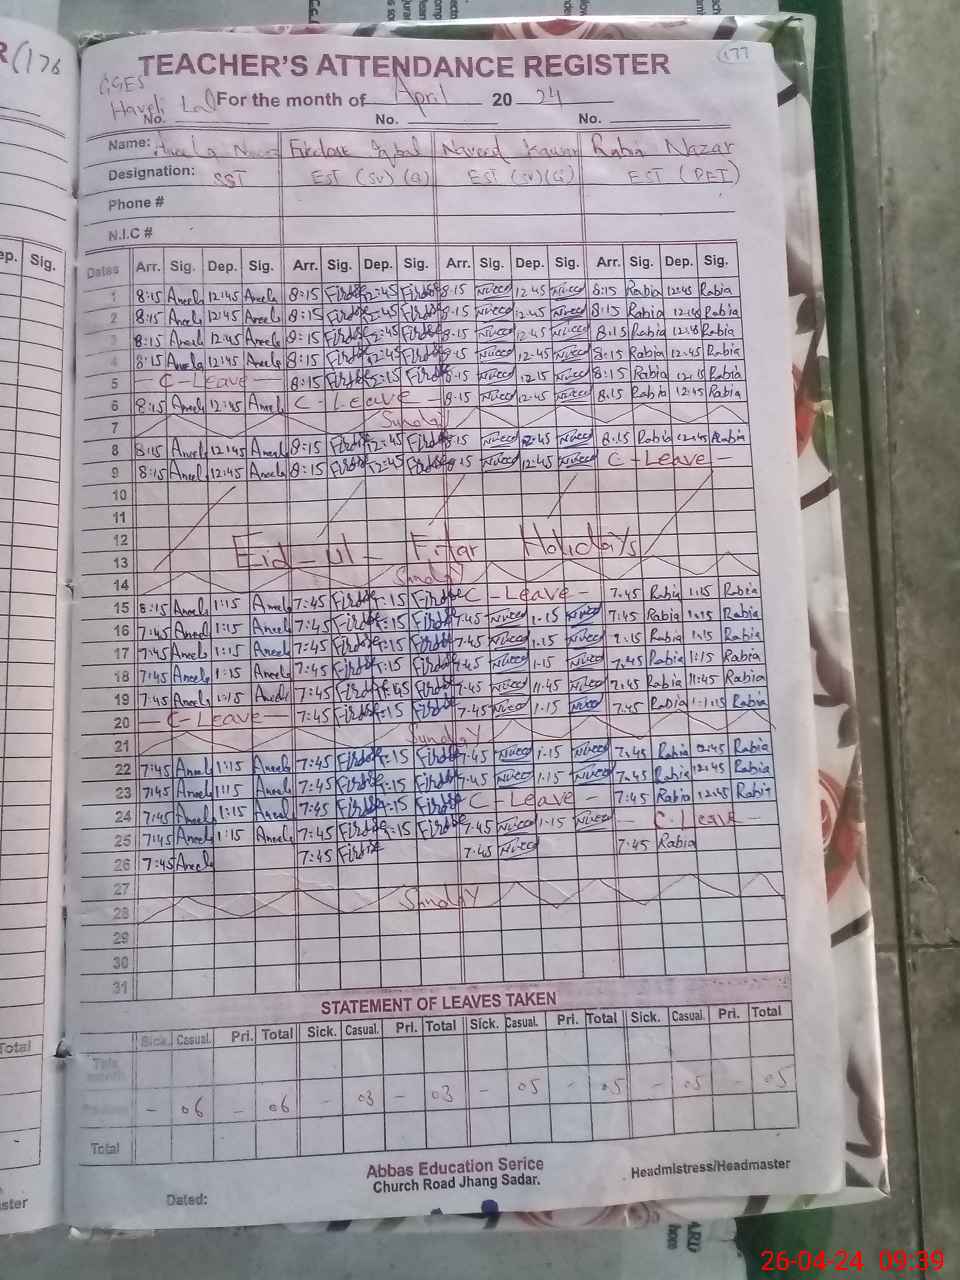 R(176
177
TEACHER'S ATTENDANCE REGISTER
GGES
Haveli Lal For the month of April 20 24
No. No. No.
Name: Aneela Firdous Iqbal Naveed Kausar Rabia Nazar
Designation: SST EST (SV) (G) EST (SV)(G) EST (PET)
Phone #
N.I.C #
ep. Sig. Dates Arr. Sig. Dep. Sig. Arr. Sig. Dep. Sig. Arr. Sig. Dep. Sig. Arr. Sig. Dep. Sig.
1 8:15 Aneela 12:45 Aneela 8:15 Firdose 12:45 Firdose 8:15 12:45 8:15 Rabia 12:45 Rabia
2 8:15 Aneela 12:45 Aneela 8:15 Firdose 12:45 Firdose 8:15 12:45 8:15 Rabia 12:45 Rabia
3 8:15 Aneela 12:45 Aneela 8:15 Firdose 12:45 Firdose 8:15 12:45 8:15 Rabia 12:45 Rabia
4 8:15 Aneela 12:45 Aneela 8:15 Firdose 12:45 Firdose 8:15 12:45 8:15 Rabia 12:45 Rabia
5 — C - Leave — 8:15 Firdose 12:15 Firdose 8:15 12:15 8:15 Rabia 12:15 Rabia
6 8:15 Aneela 12:45 Aneela C - Leave - 8:15 12:45 8:15 Rabia 12:45 Rabia
7 Sunday
8 8:15 Aneela 12:45 Aneela 8:15 Firdose 12:45 Firdose 8:15 12:45 8:15 Rabia 12:45 Rabia
9 8:15 Aneela 12:45 Aneela 8:15 Firdose 12:45 Firdose 8:15 12:45 C - Leave -
10
11
12 Eid - ul - Fitar Holidays
13
14 Sunday
15 8:15 Aneela 1:15 Aneela 7:45 Firdose 1:15 Firdose C - Leave - 7:45 Rabia 1:15 Rabia
16 7:45 Aneela 1:15 Aneela 7:45 Firdose 1:15 Firdose 7:45 1:15 7:45 Rabia 1:15 Rabia
17 7:45 Aneela 1:15 Aneela 7:45 Firdose 1:15 Firdose 7:45 1:15 Rabia 1:15 Rabia
18 7:45 Aneela 1:15 Aneela 7:45 Firdose 1:15 Firdose 7:45 1:15 7:45 Rabia 1:15 Rabia
19 7:45 Aneela 1:15 Aneela 7:45 Firdose 11:45 Firdose 7:45 11:45 7:45 Rabia 11:45 Rabia
20 — C - Leave — 7:45 Firdose 1:15 Firdose 7:45 1:15 7:45 Rabia 1:15 Rabia
21 Sunday
22 7:45 Aneela 1:15 Aneela 7:45 Firdose 1:15 Firdose 7:45 1:15 7:45 Rabia 12:45 Rabia
23 7:45 Aneela 1:15 Aneela 7:45 Firdose 1:15 Firdose 7:45 1:15 7:45 Rabia 12:45 Rabia
24 7:45 Aneela 1:15 Aneela 7:45 Firdose 1:15 Firdose C - Leave - 7:45 Rabia 12:45 Rabia
25 7:45 Aneela 1:15 Aneela 7:45 Firdose 1:15 Firdose 7:45 1:15 — C - Leave —
26 7:45 Aneela 7:45 Firdose 7:45 7:45 Rabia
27
28 Sunday
29
30
31
STATEMENT OF LEAVES TAKEN
Sick. Casual. Pri. Total Sick. Casual. Pri. Total Sick. Casual. Pri. Total Sick. Casual. Pri. Total
Total
This month
Previous - 06 - 06 - 03 - 03 - 05 - 05 - 05 - 05
Total
Abbas Education Serice
Church Road Jhang Sadar.
Headmistress/Headmaster
ster
Dated:
26-04-24 09:39